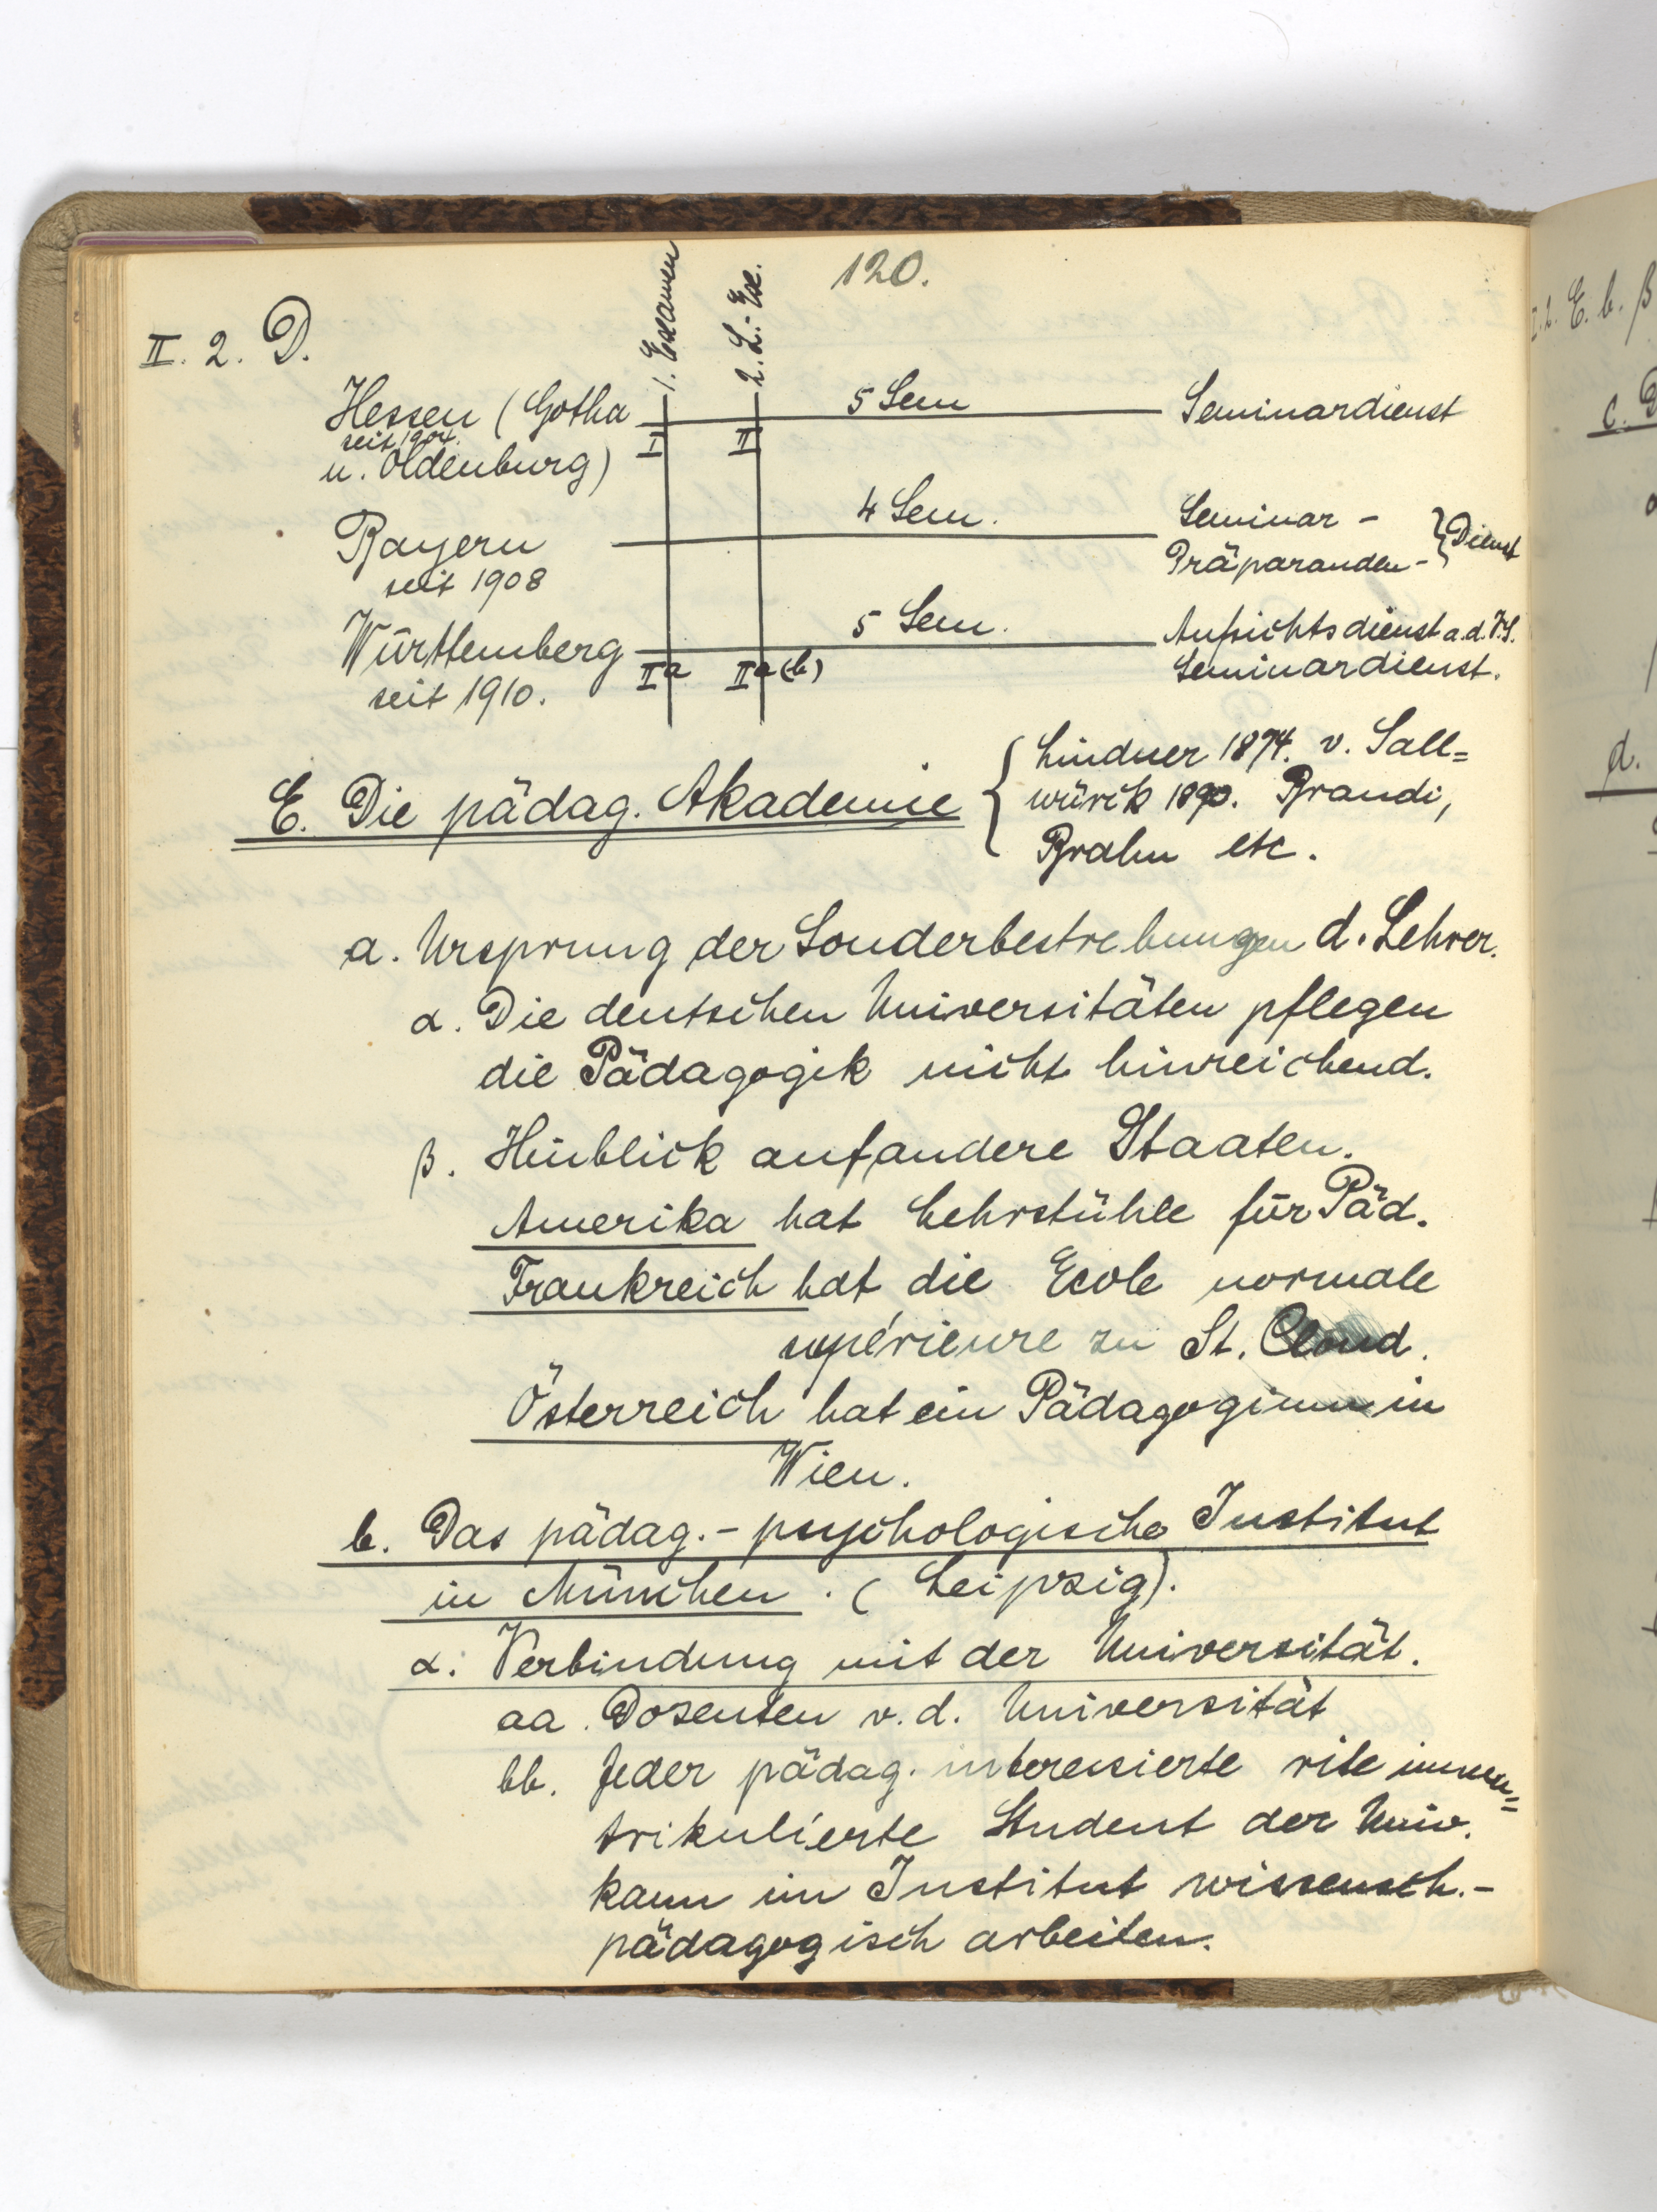 120.
II. 2. D.
1. Examen
2. L.-Ex.
Hessen (Gotha
seit 1904.
u. Oldenburg)
I
II
5 Sem
Seminardienst
Bayern
seit 1908
4 Sem.
Seminar -
Präparanden -
} Dienst
Württemberg
seit 1910.
IIa
IIa (b)
5 Sem.
Aufsichtsdienst a. d. V.S.
Seminardienst.
E. Die pädag. Akademie
{ Lindner 1874. v. Sall=
würck 1890. Brandi,
Brahn etc.
a. Ursprung der Sonderbestrebungen d. Lehrer.
α. Die deutschen Universitäten pflegen
die Pädagogik nicht hinreichend.
β. Hinblick auf andere Staaten.
Amerika hat Lehrstühle für Päd.
Frankreich hat die Ecole normale
supérieure zu St. Cloud.
Österreich hat ein Pädagogium in
Wien.
b. Das pädag.-psychologische Institut
in München. (Leipzig).
α. Verbindung mit der Universität.
aa. Dozenten v. d. Universität
bb. Jeder pädag. interessierte rite imma=
trikulierte Student der Univ.
kann im Institut wissensch.-
pädagogisch arbeiten.
I. 2. E. b. β
c.
d.